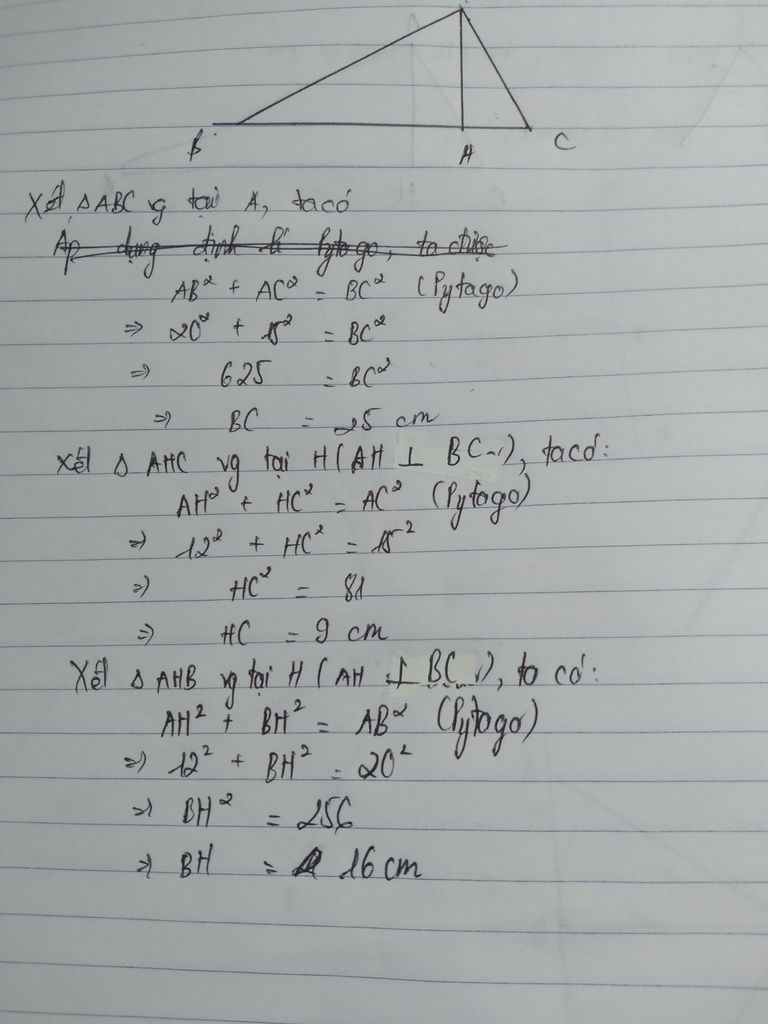 B H C
Xét △ABC vg tại A, ta có
Áp dụng định lí Pytago, ta được
AB² + AC² = BC² (Pytago)
⇒ 20² + 15² = BC²
⇒ 625 = BC²
⇒ BC = 25 cm
Xét △ AHC vg tại H (AH ⊥ BC), ta có:
AH² + HC² = AC² (Pytago)
⇒ 12² + HC² = 15²
⇒ HC² = 81
⇒ HC = 9 cm
Xét △ AHB vg tại H (AH ⊥ BC), ta có:
AH² + BH² = AB² (Pytago)
⇒ 12² + BH² = 20²
⇒ BH² = 256
⇒ BH = 16 cm